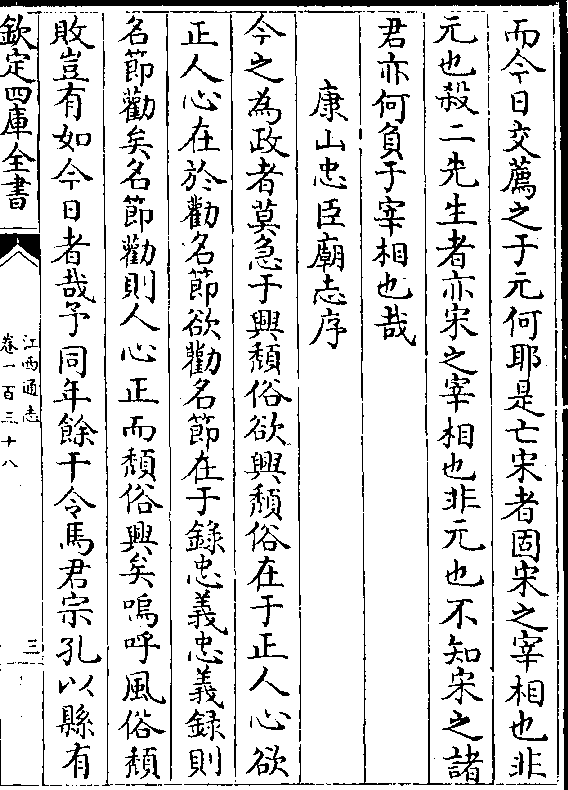 而今日交薦之于元何耶是亡宋者固宋之宰相也非
元也殺二先生者亦宋之宰相也非元也不知宋之諸
君亦何負于宰相也哉
康山忠臣廟志序
今之為政者莫急于興頽俗欲興頽俗在于正人心欲
正人心在於勸名節欲勸名節在于錄忠義忠義録則
名節勸矣名節勸則人心正而頽俗興矣嗚呼風俗頽
敗豈有如今日者哉予同年餘干令馬君宗孔以縣有
欽定四庫全書
江西通志
卷一百三十八
三